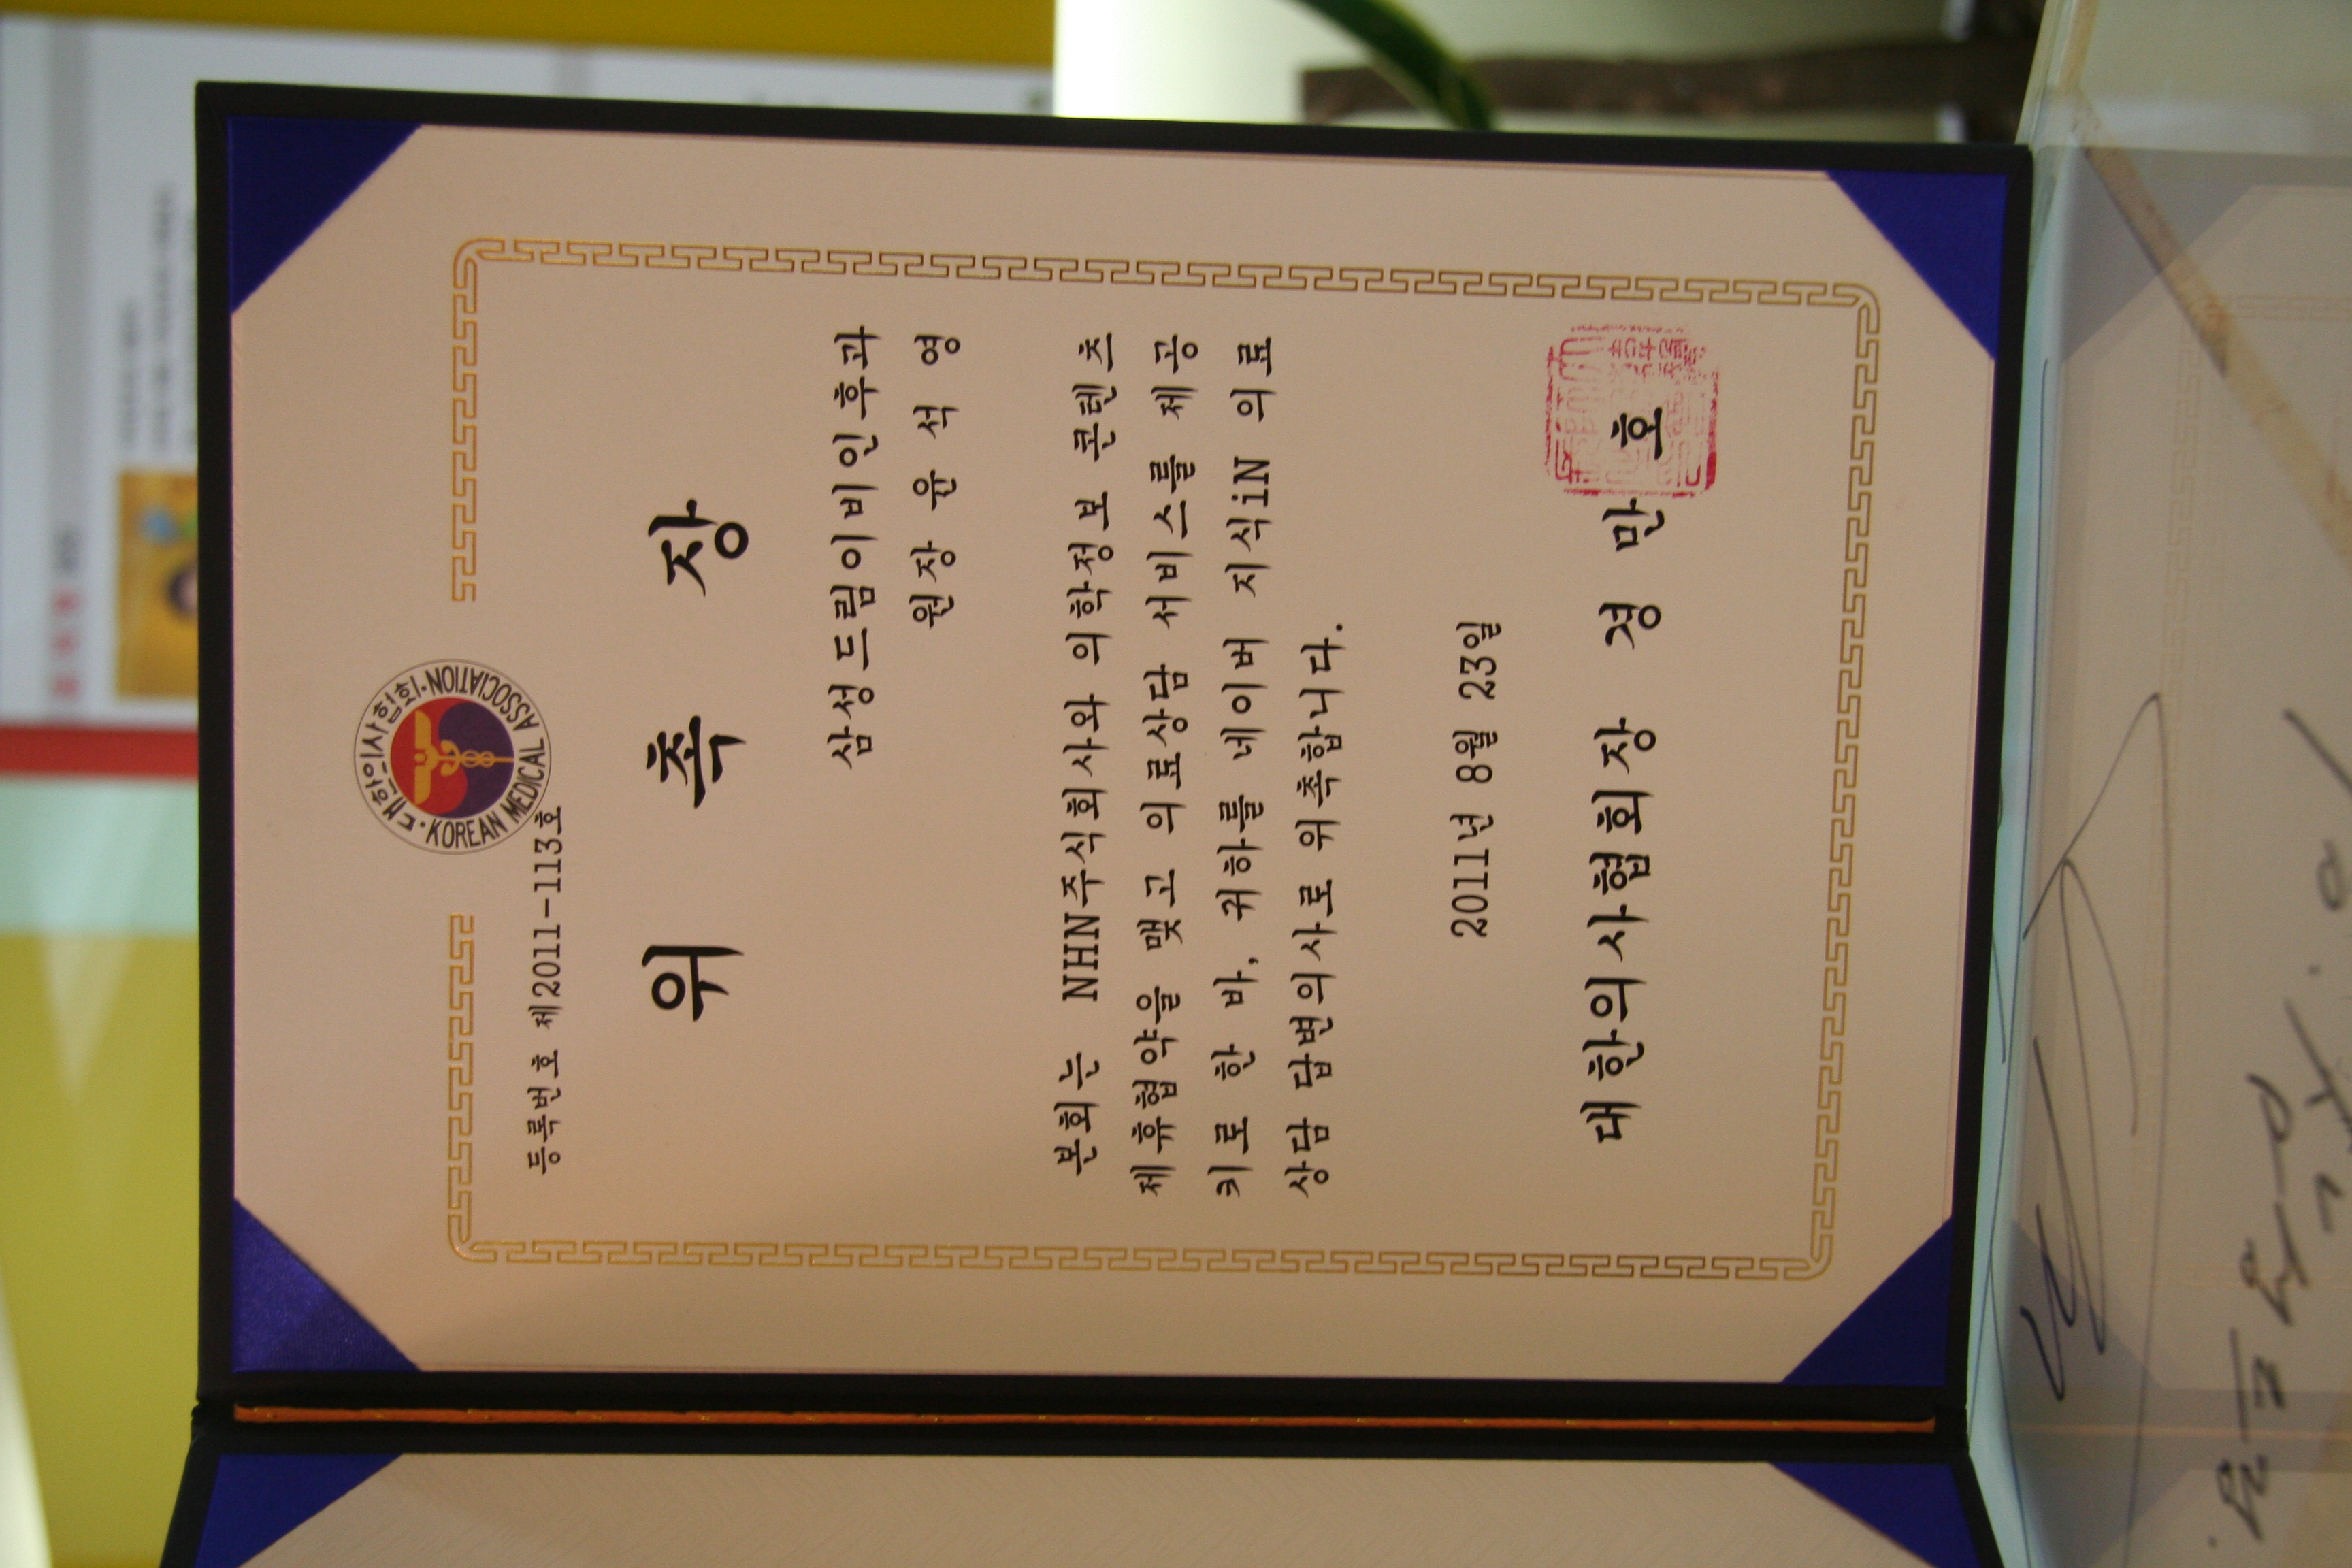 대한의사협회·KOREAN MEDICAL ASSOCIATION·
등록번호 제2011-113호
위 촉 장
삼성드림이비인후과
원장 윤 석 영
본회는 NHN주식회사와 의학정보 콘텐츠
제휴협약을 맺고 의료상담 서비스를 제공
키로 한 바, 귀하를 네이버 지식iN 의료
상담 답변의사로 위촉합니다.
2011년 8월 23일
대한의사협회장 경 만 호